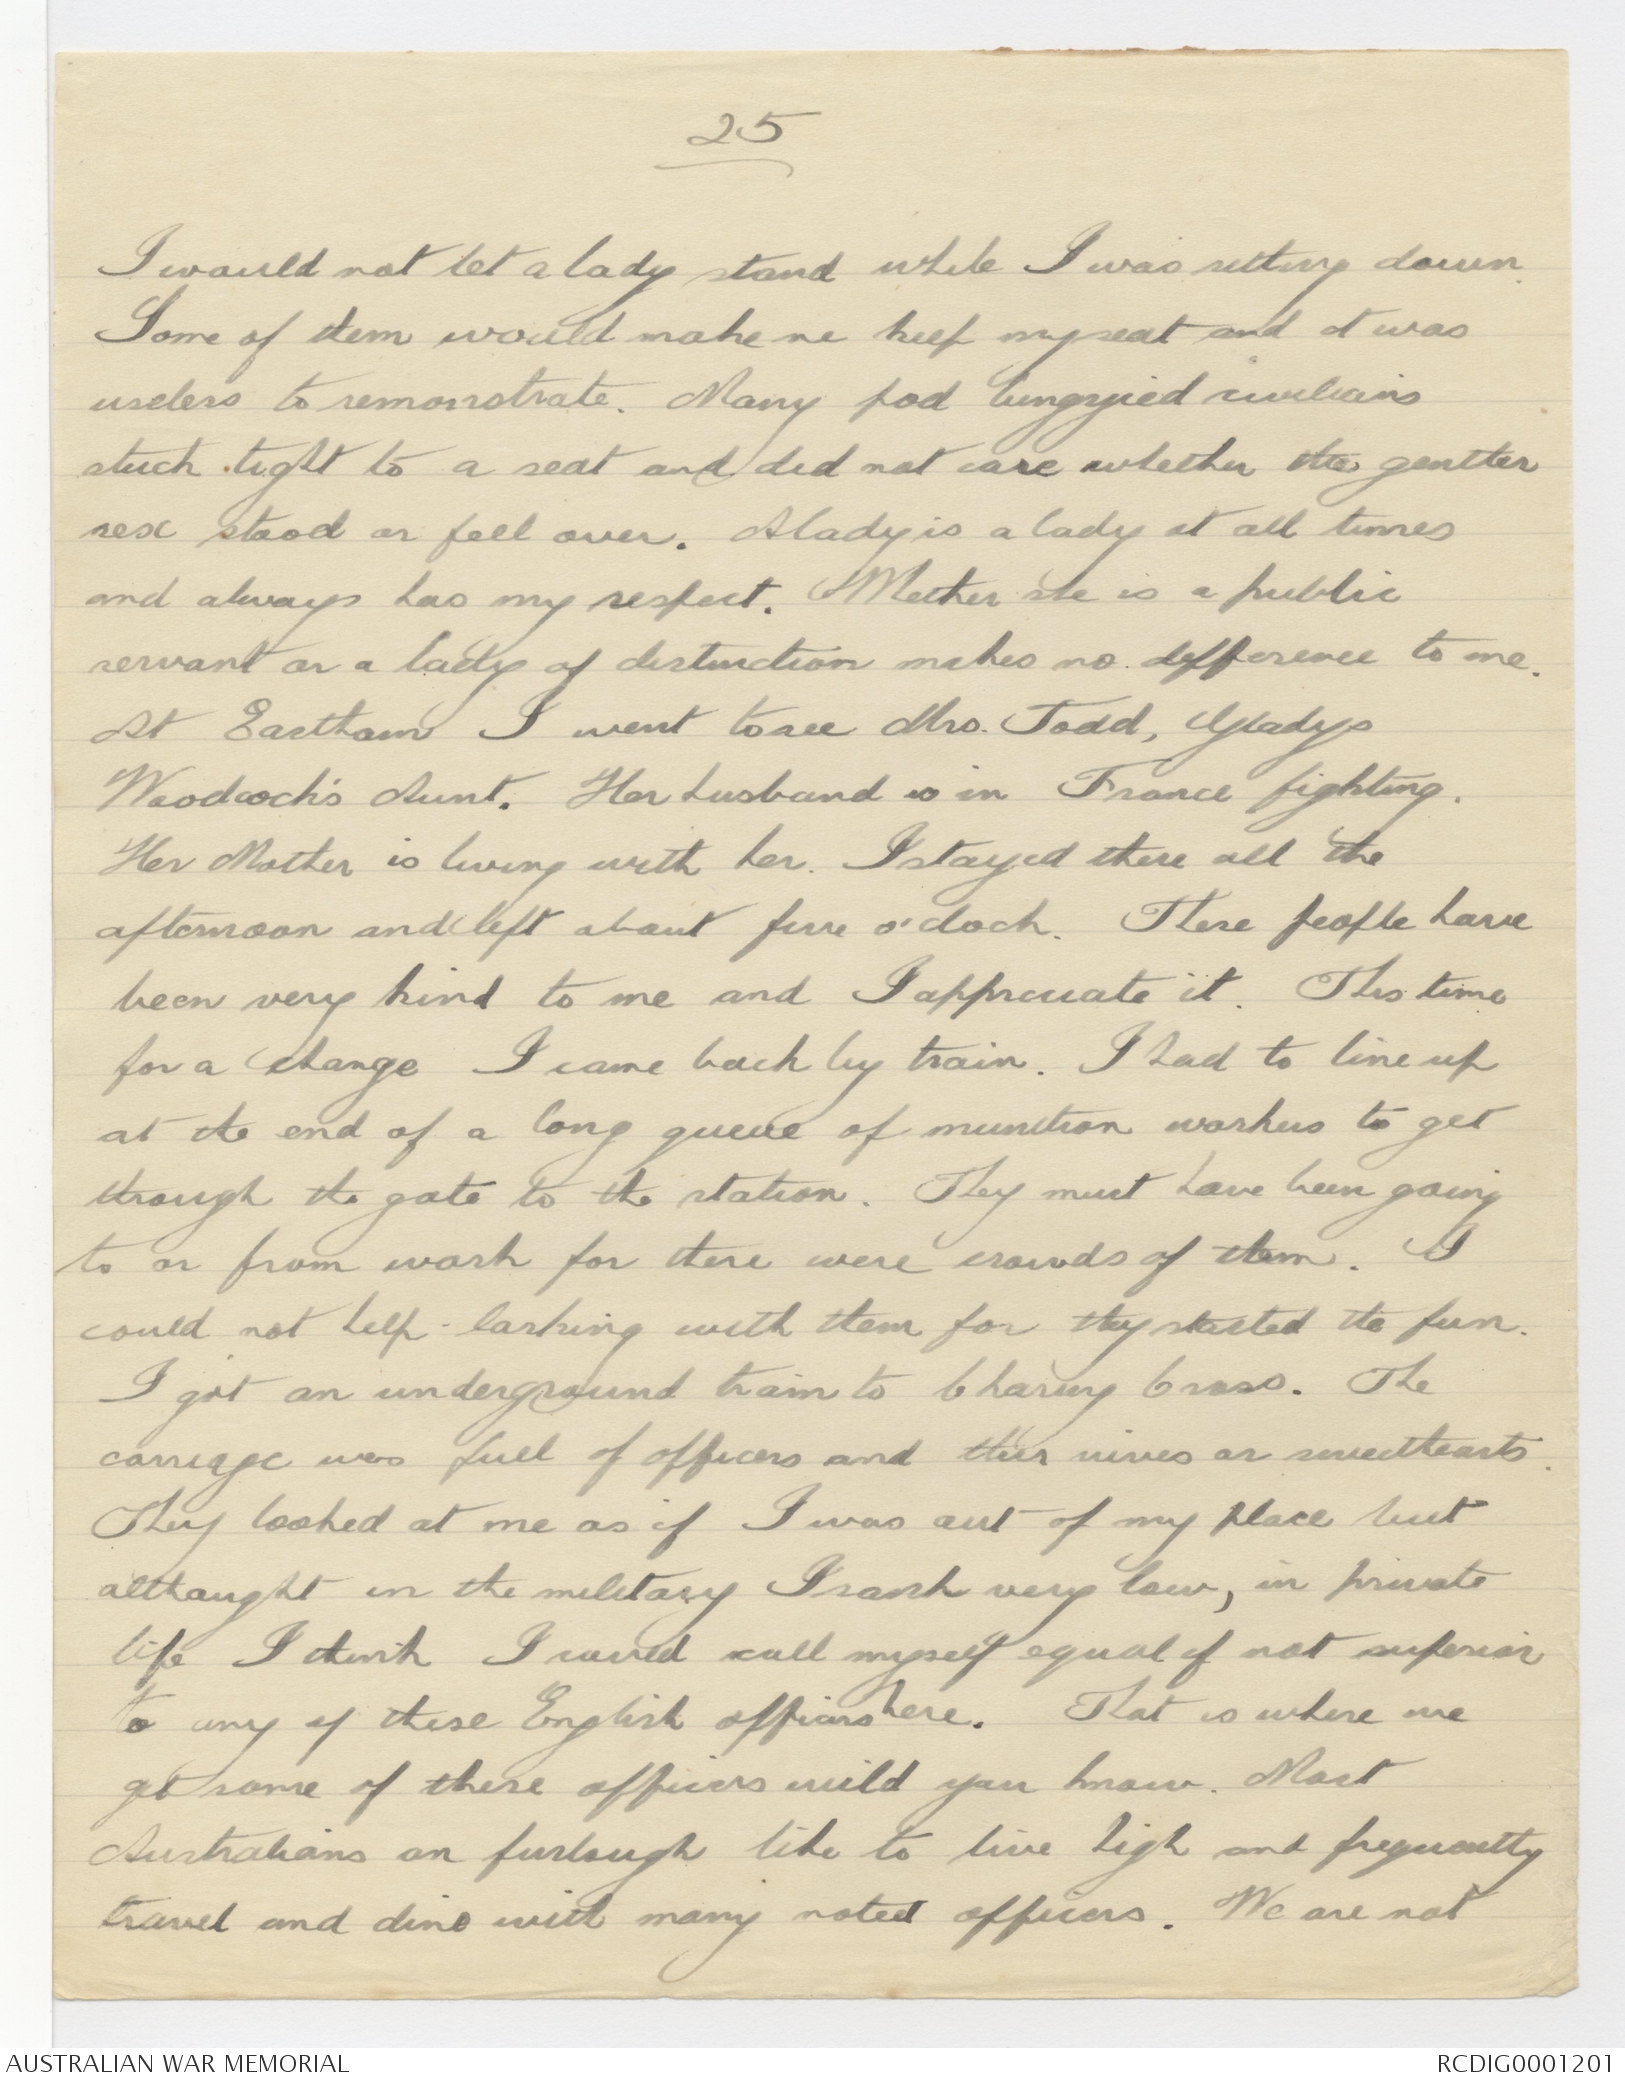 25
I would not let a lady stand while I was sitting down.
Some of them would make me keep my seat and it was
useless to remonstrate. Many pod civilians
stuck tight to a seat and did not care whether the gentler
sex stood or fell over. A lady is a lady at all times
and always has my respect. Whether she is a public
servant or a lady of distinction makes no difference to me.
At Eastham I went to see Mrs. Todd, Gladys
Woodcock's Aunt. Her husband is in France fighting.
Her Mother is living with her. I stayed there all the
afternoon and left about five o'clock. These people have
been very kind to me and I appreciate it. This time
for a change I came back by train. I had to line up
at the end of a long queue of munition workers to get
through the gate to the station. They must have been going
to or from work for there were crowds of them. I
could not help larking with them for they started the fun.
I got an underground train to Charing Cross. The
carriage was full of officers and their wives or sweethearts.
They looked at me as if I was out of my place but
althaught in the military I rank very low, in private
life I think I could call myself equal if not superior
to any of these English officers here. That is where we
get some of these officers wild you know. Most
Australians on furlough like to live high and frequently
travel and dine with many noted officers. We are not
AUSTRALIAN WAR MEMORIAL
RCDIG0001201